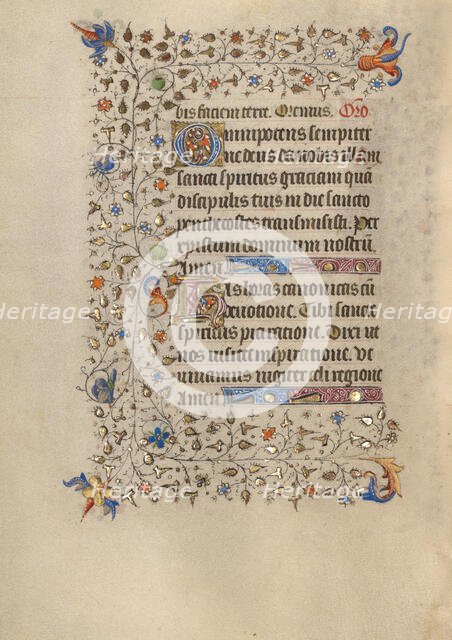 bis faciem terre. Oremus. Oro
Omnipotens sempiter
ne deus da nobis illam
sancti spiritus graciam quā
discipulis tuis in die sancto
penthecostes transmisisti. Per
xpistum dominum nostrū.
Amen.
as horas canonicas cū
devotione. Tibi sancte
spiritus pia ratione. Dixi ut
nos visites inspiratione. Ut
vivamus iugiter celi regione
Amen.
Heritage Heritage Heritage
Heritage Heritage Heritage
Heritage Heritage